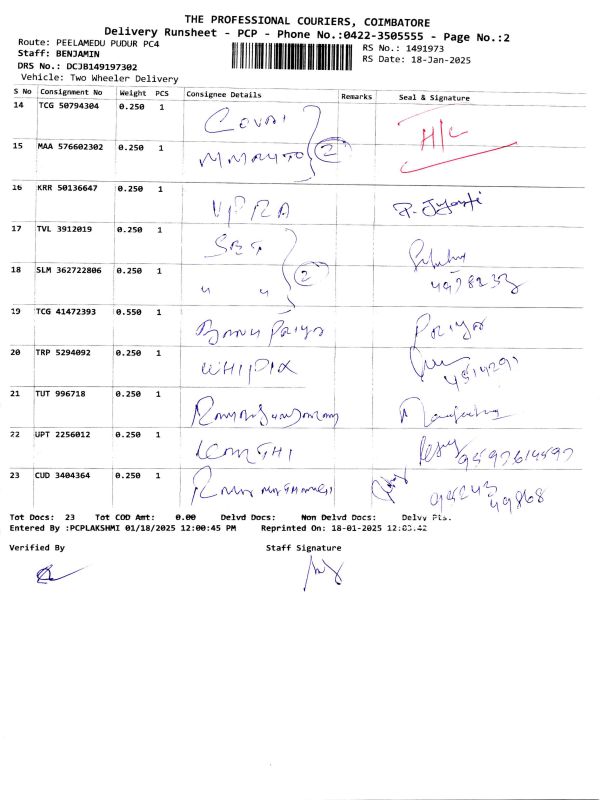 THE PROFESSIONAL COURIERS, COIMBATORE
Delivery Runsheet - PCP - Phone No.:0422-3505555 - Page No.:2
Route: PEELAMEDU PUDUR PC4
Staff: BENJAMIN
DRS No.: DCJB149197302
Vehicle: Two Wheeler Delivery
RS No.: 1491973
RS Date: 18-Jan-2025
S No Consignment No Weight PCS Consignee Details Remarks Seal & Signature
14 TCG 50794304 0.250 1 H/C
15 MAA 576602302 0.250 1 2
16 KRR 50136647 0.250 1 P. Jyanti
17 TVL 3912019 0.250 1
18 SLM 362722806 0.250 1 " " 2
19 TCG 41472393 0.550 1 Banu Priya Priya
20 TRP 5294092 0.250 1 WHIPIX
21 TUT 996718 0.250 1
22 UPT 2256012 0.250 1
23 CUD 3404364 0.250 1
Tot Docs: 23 Tot COD Amt: 0.00 Delvd Docs: Non Delvd Docs: Delvy Pts.
Entered By :PCPLAKSHMI 01/18/2025 12:00:45 PM Reprinted On: 18-01-2025 12:03:42
Verified By Staff Signature